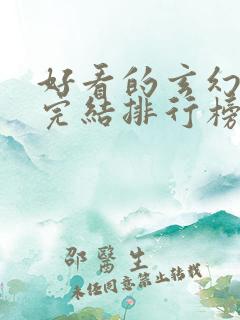 好看的玄幻
完結排行榜
邵醫生
未经同意禁止转载